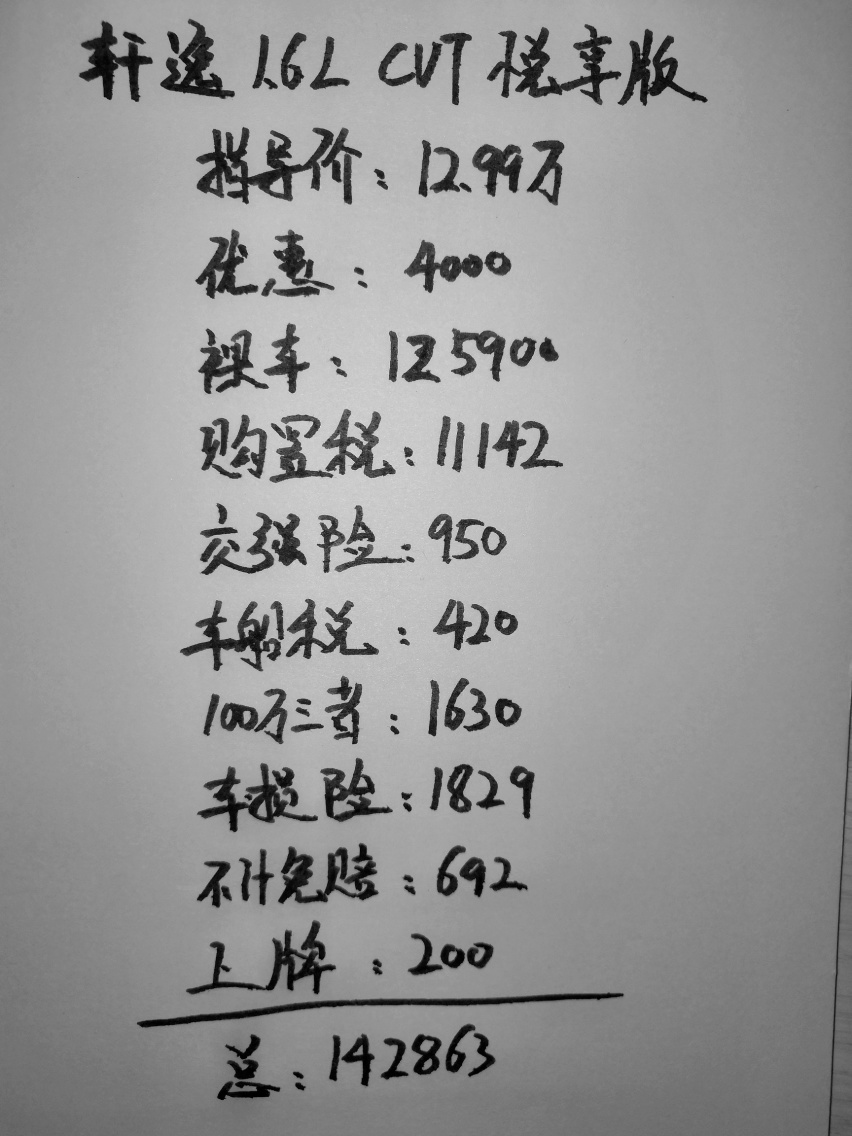 轩逸 1.6L CVT 悦享版
指导价：12.99万
优惠：4000
裸车：125900
购置税：11142
交强险：950
车船税：420
100万三者：1630
车损险：1829
不计免赔：692
上牌：200
总：142863